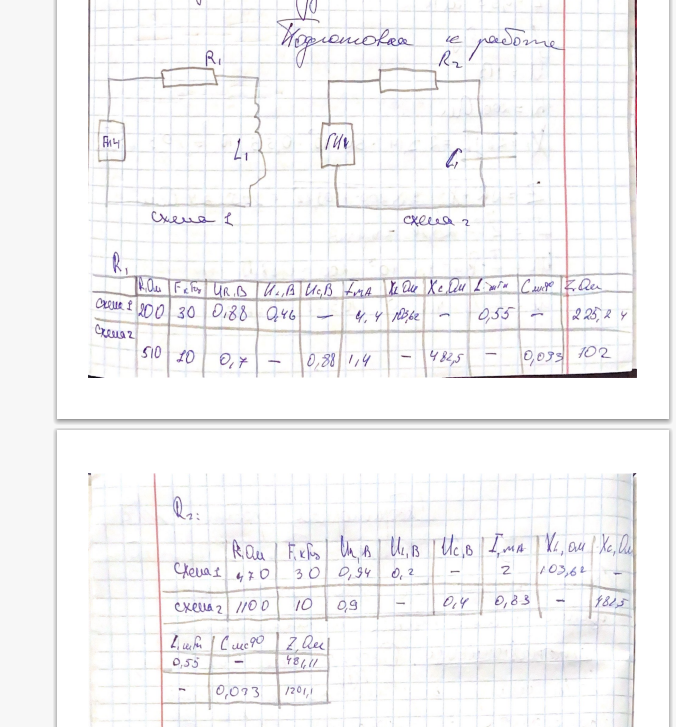 Подготовка к работе
R₁ R₂
ГНЧ L₁ ГНЧ C₁
схема 1 схема 2
R₁
R,Ом F,кГц UR,В UL,В UC,В I,мА XL,Ом XC,Ом L,мГн C,мкФ Z,Ом
схема 1 200 30 0,88 0,46 — 4,4 103,62 — 0,55 — 225,24
схема 2 510 10 0,7 — 0,88 1,4 — 482,5 — 0,033 702
R₂:
R,Ом F,кГц UR,В UL,В UC,В I,мА XL,Ом XC,Ом
схема 1 470 30 0,94 0,2 — 2 103,62 —
схема 2 1100 10 0,9 — 0,4 0,83 — 482,5
L,мГн C,мкФ Z,Ом
0,55 — 481,11
— 0,033 1201,1